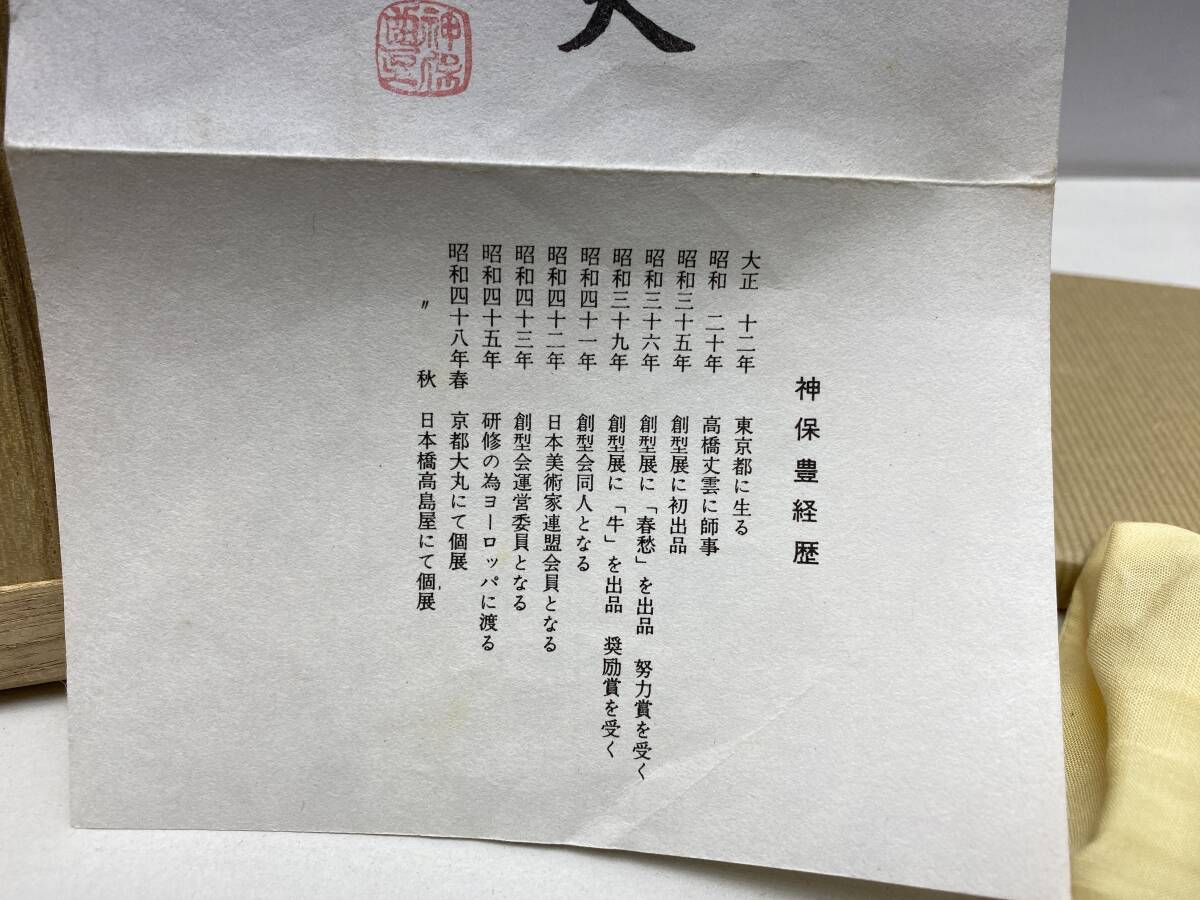 神保豊経歴
大正 十二年 東京都に生る
昭和 二十年 高橋丈雲に師事
昭和三十五年 創型展に初出品
昭和三十六年 創型展に「春愁」を出品 努力賞を受く
昭和三十九年 創型展に「牛」を出品 奨励賞を受く
昭和四十一年 創型会同人となる
昭和四十二年 日本美術家連盟会員となる
昭和四十三年 創型会運営委員となる
昭和四十五年 研修の為ヨーロッパに渡る
昭和四十八年春 京都大丸にて個展
〃 秋 日本橋高島屋にて個展